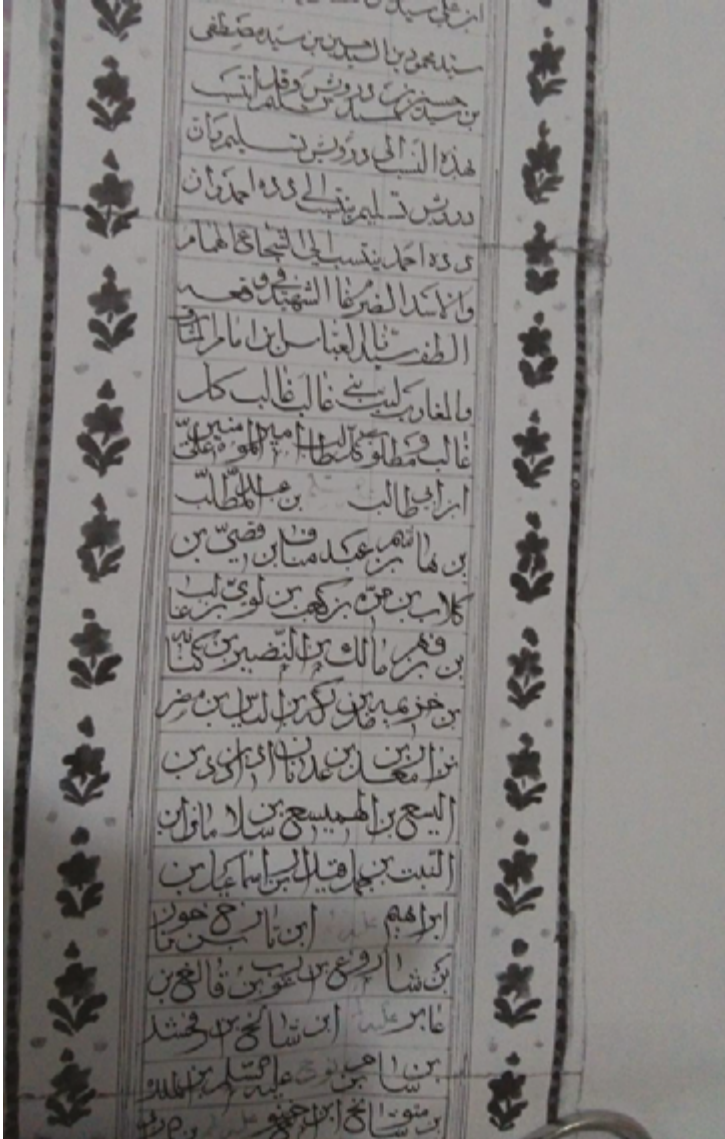 ابن علي بن سيد
سيد محمود بن السيد حسين بن سيد مصطفى
بن سيد حسين درويش وقيل انتسب
لهذه النسب الى درويش تسليم بان
درويش تسليم ينتسب الى دده احمد وان
دده احمد ينتسب الى الشجاع الهمام
والاسد الضرغام الشهيد في وقعة
الطف سيدنا العباس بن امام المشارق
والمغارب ليث بني غالب غالب كل
غالب ومطلوب كل طالب امير المؤمنين علي
ابن ابي طالب بن عبد المطلب
بن هاشم بن عبد مناف بن قصي بن
كلاب بن مره بن كعب بن لوي بن غالب
بن فهر بن مالك بن النضير بن كنانه
بن خزيمه بن مدركه بن الياس بن مضر
بن نزار بن معد بن عدنان بن اد بن ادد بن
اليسع بن الهميسع بن سلامان بن
النبت بن حمل بن قيدار بن اسماعيل بن
ابراهيم ابن تارخ بن ناحور
بن شاروع بن ارغو بن فالغ بن
عابر ابن شالخ بن ارفخشد
بن سام بن نوح عليه السلام بن الملك
بن متوشالخ ابن اخنوخ